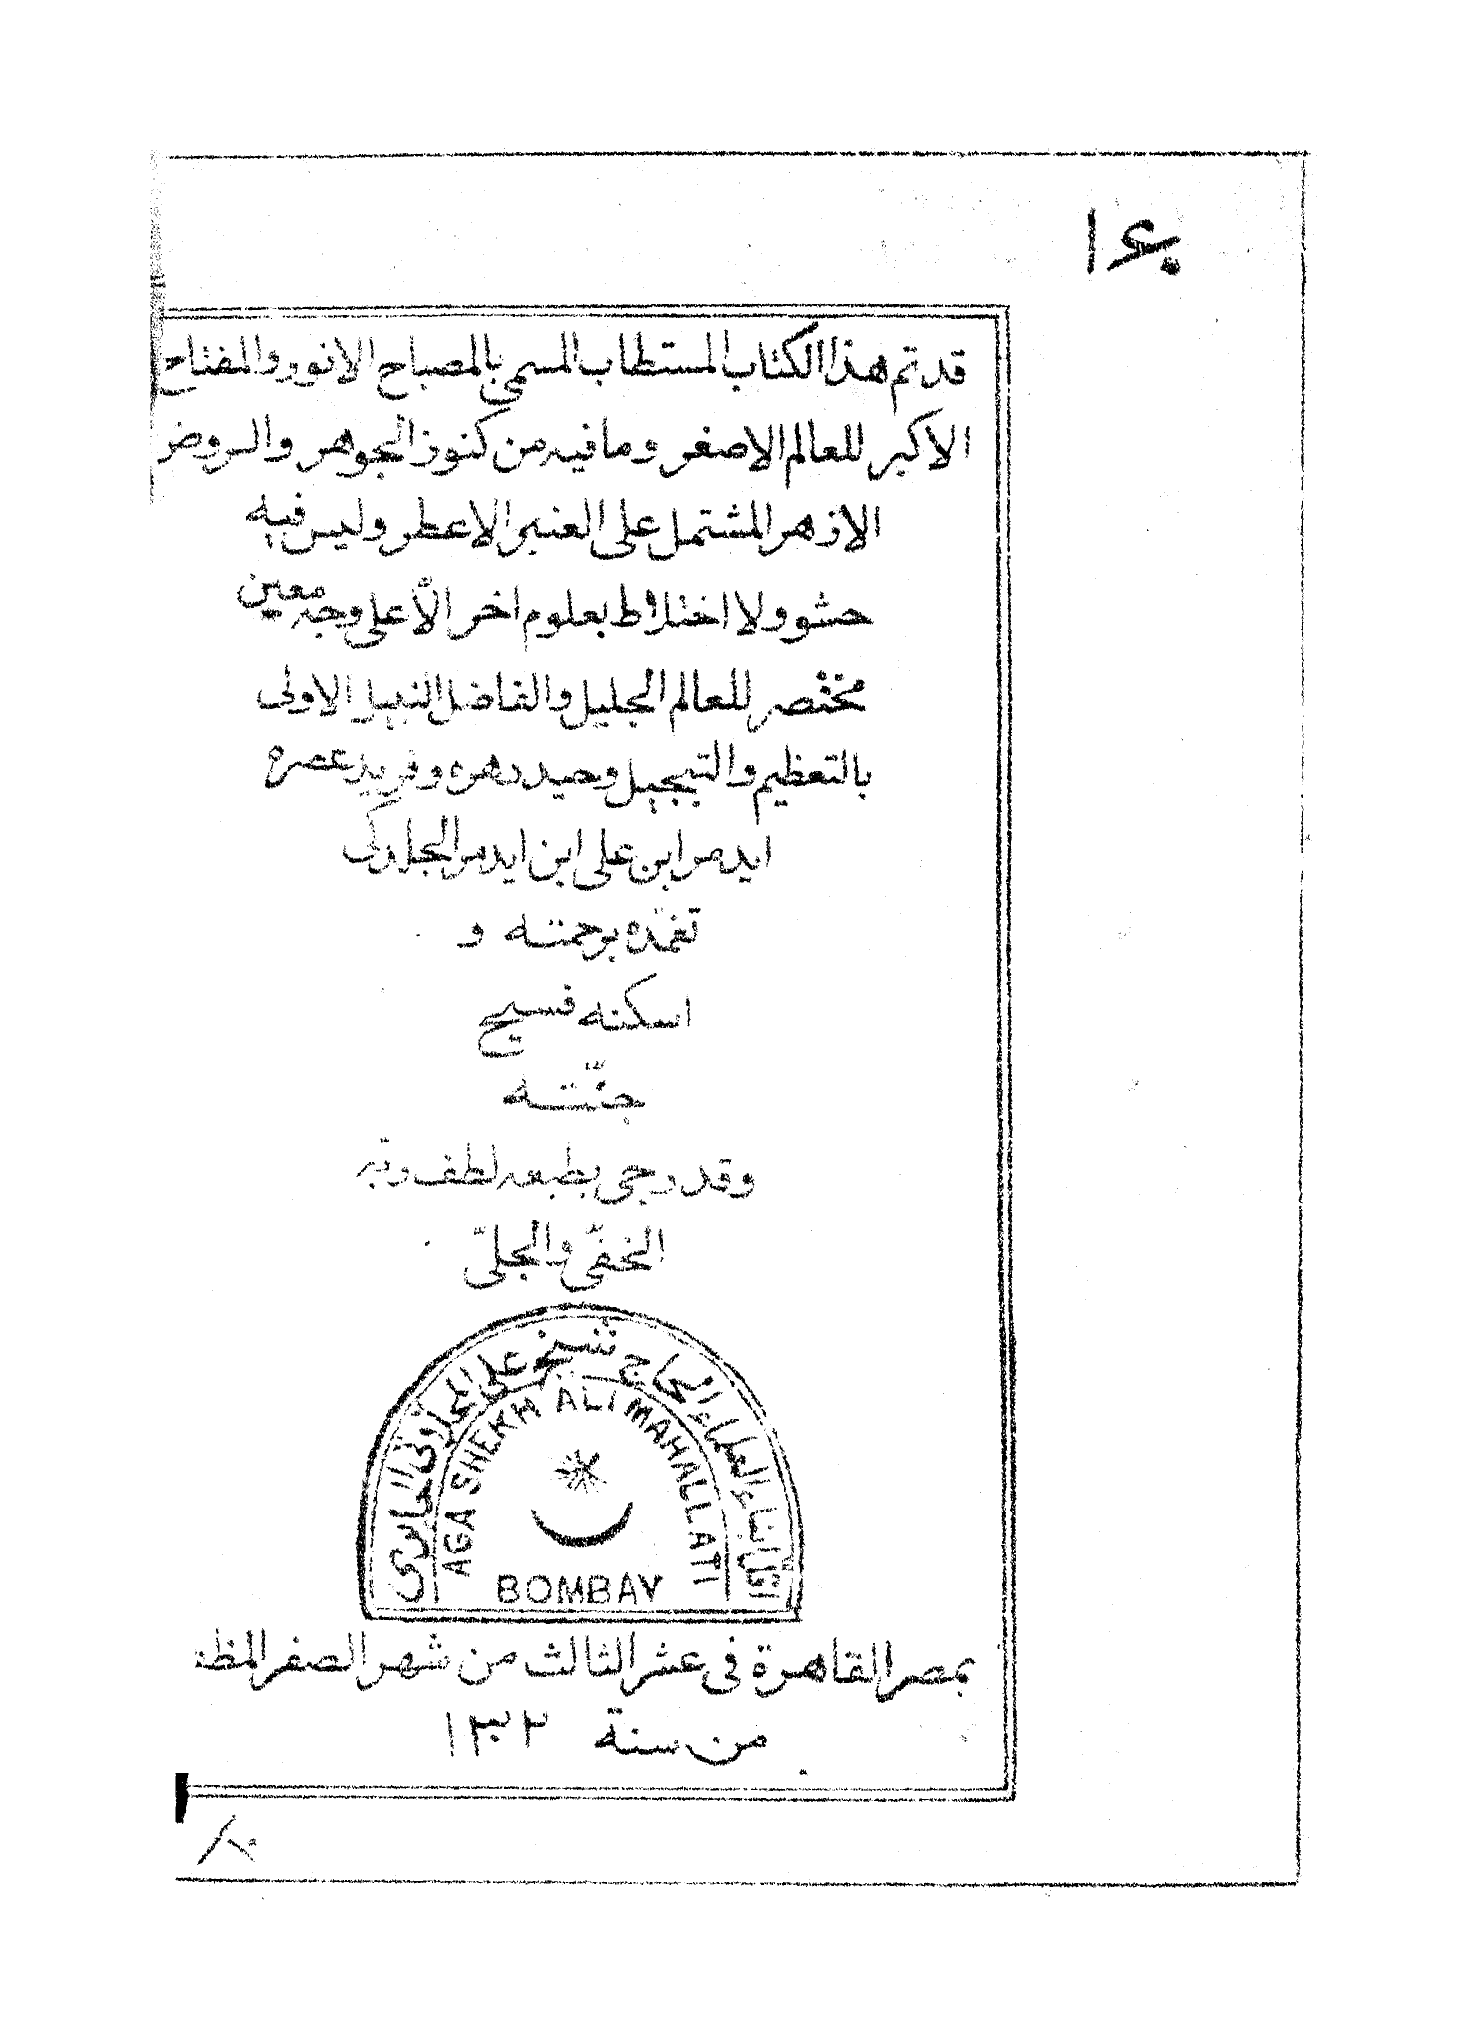 ١٤٠
قد تم هذا الكتاب المستطاب المسمى بالمصباح الانور والمفتاح
الاكبر للعالم الاصغر وما فيه من كنوز الجوهر والروض
الازهر المشتمل على العنبر الاعطر وليس فيه
حشو ولا اختلاط بعلوم اخر الّا على وجه معين
مختصر للعالم الجليل والفاضل النبيل الاولى
بالتعظيم والتبجيل وحيد دهره وفريد عصره
ايدمر ابن على ابن ايدمر الجلدكى
تغمّده برحمته و
اسكنه فسيح
جنّته
وقد رجى بطبعه لطف ربّه
الخفىّ والجلىّ
الحاج شيخ على المحلّاتى الحايرى
AGA SHEKH ALI MAHALLATI
BOMBAY
بمصر القاهرة فى عشر الثالث من شهر الصفر المظ
من سنة ١٣٠٢